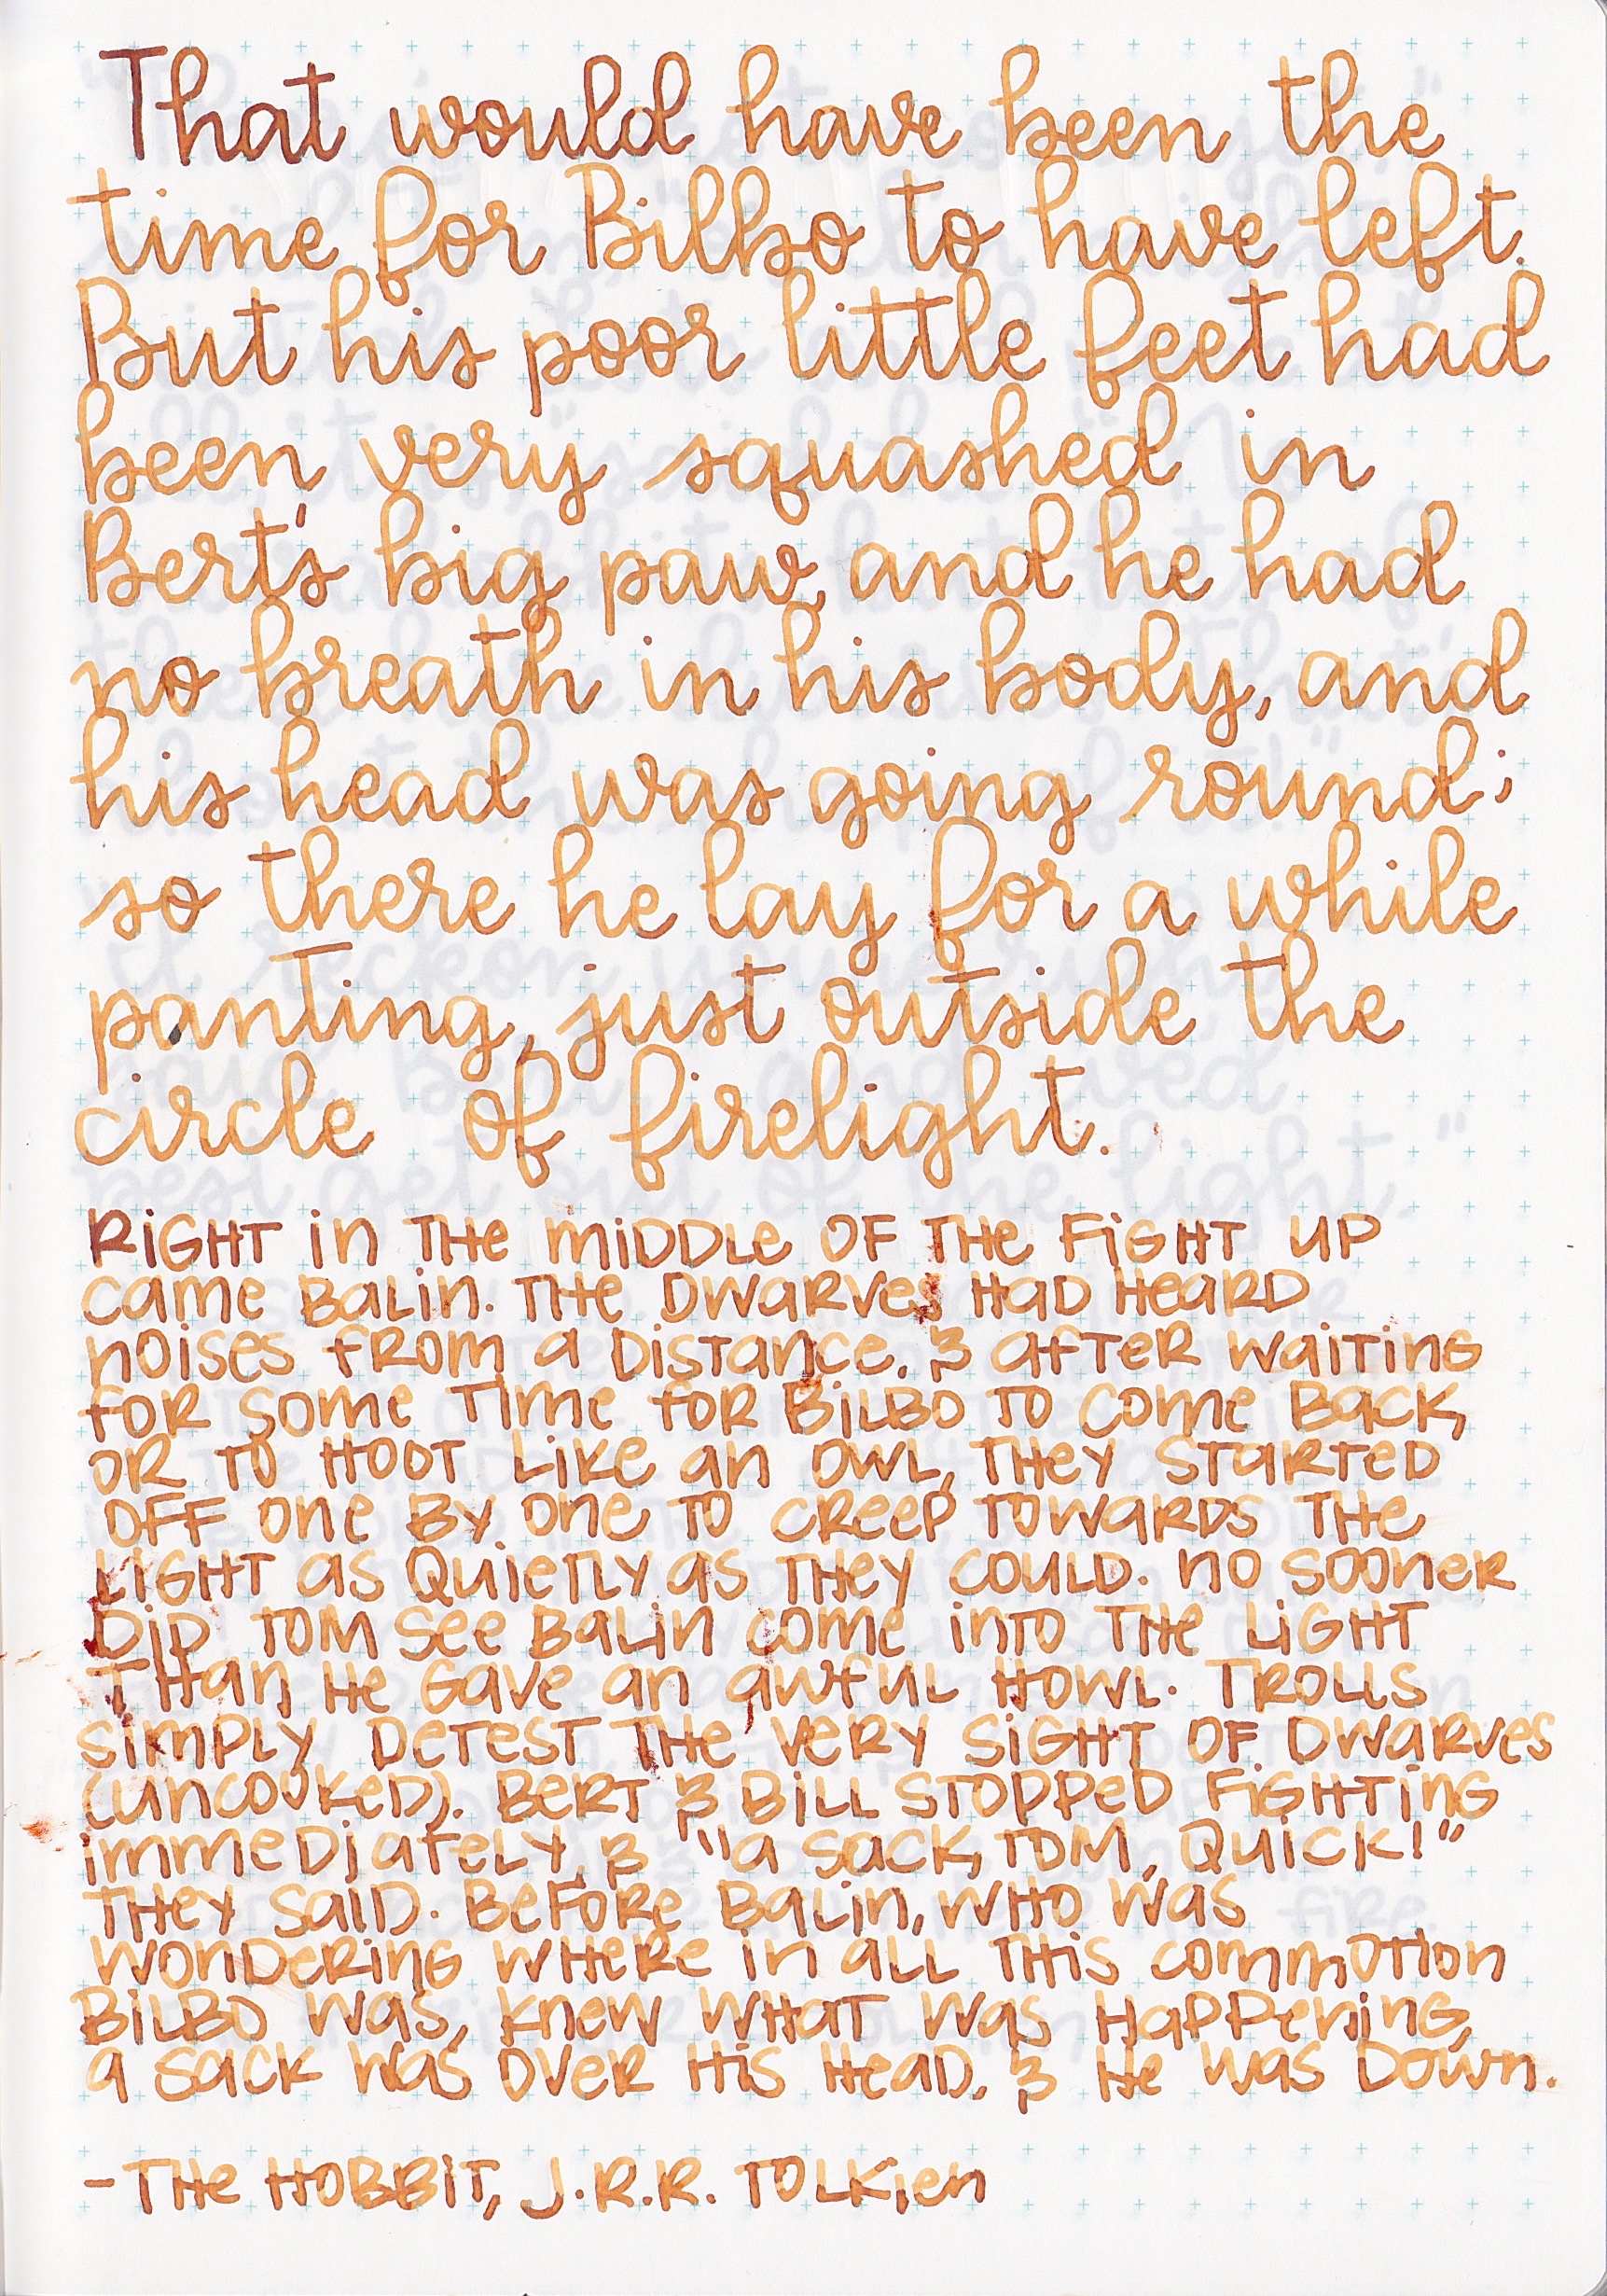 That would have been the
time for Bilbo to have left.
But his poor little feet had
been very squashed in
Bert's big paw, and he had
no breath in his body, and
his head was going round;
so there he lay for a while
panting, just outside the
circle of firelight.
RiGHT in THe miDDLe OF THe FiGHT UP
came BaLin. THe DWaRVes HaD HeaRD
noises fROm a DisTance, & afTeR WaiTinG
foR Some Time foR BiLBO TO come Back,
OR TO HOOT Like an OWL, THey STaRTeD
OFF one By one TO CReeP TOWaRDS THe
LiGHT as QuieTLy as THey COULD. no sooneR
DiD TOM see BaLin come inTO THe LiGHT
THan He Gave an awfuL HOWL. TROLLS
simPLy DeTeST THe veRy SiGHT OF DWaRves
(uncooKeD). BeRT & BiLL STOPPeD FiGHTinG
immeDiaTeLy, & "a sack, TOM, Quick!"
THey saiD. BeFORe BaLin, WHO Was
WonDeRinG WHeRe in aLL THis commoTion
BiLBO Was, knew WHaT Was HaPPeninG,
a sack Was OVeR His HeaD, & He Was DOwn.
-THe HOBBiT, J.R.R. TOLKien